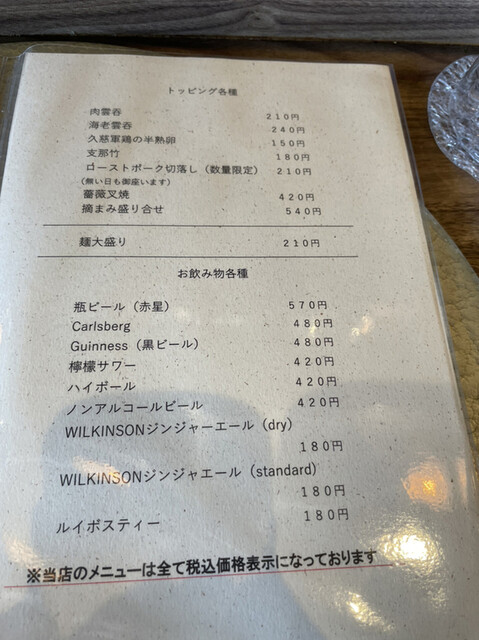 トッピング各種
肉雲呑 210円
海老雲呑 240円
久慈軍鶏の半熟卵 150円
支那竹 180円
ローストポーク切落し（数量限定） 210円
(無い日も御座います)
薔薇叉焼 420円
摘まみ盛り合せ 540円
麺大盛り 210円
お飲み物各種
瓶ビール（赤星） 570円
Carlsberg 480円
Guinness（黒ビール） 480円
檸檬サワー 420円
ハイボール 420円
ノンアルコールビール 420円
WILKINSONジンジャーエール（dry）
180円
WILKINSONジンジャエール（standard）
180円
ルイボスティー 180円
※当店のメニューは全て税込価格表示になっております